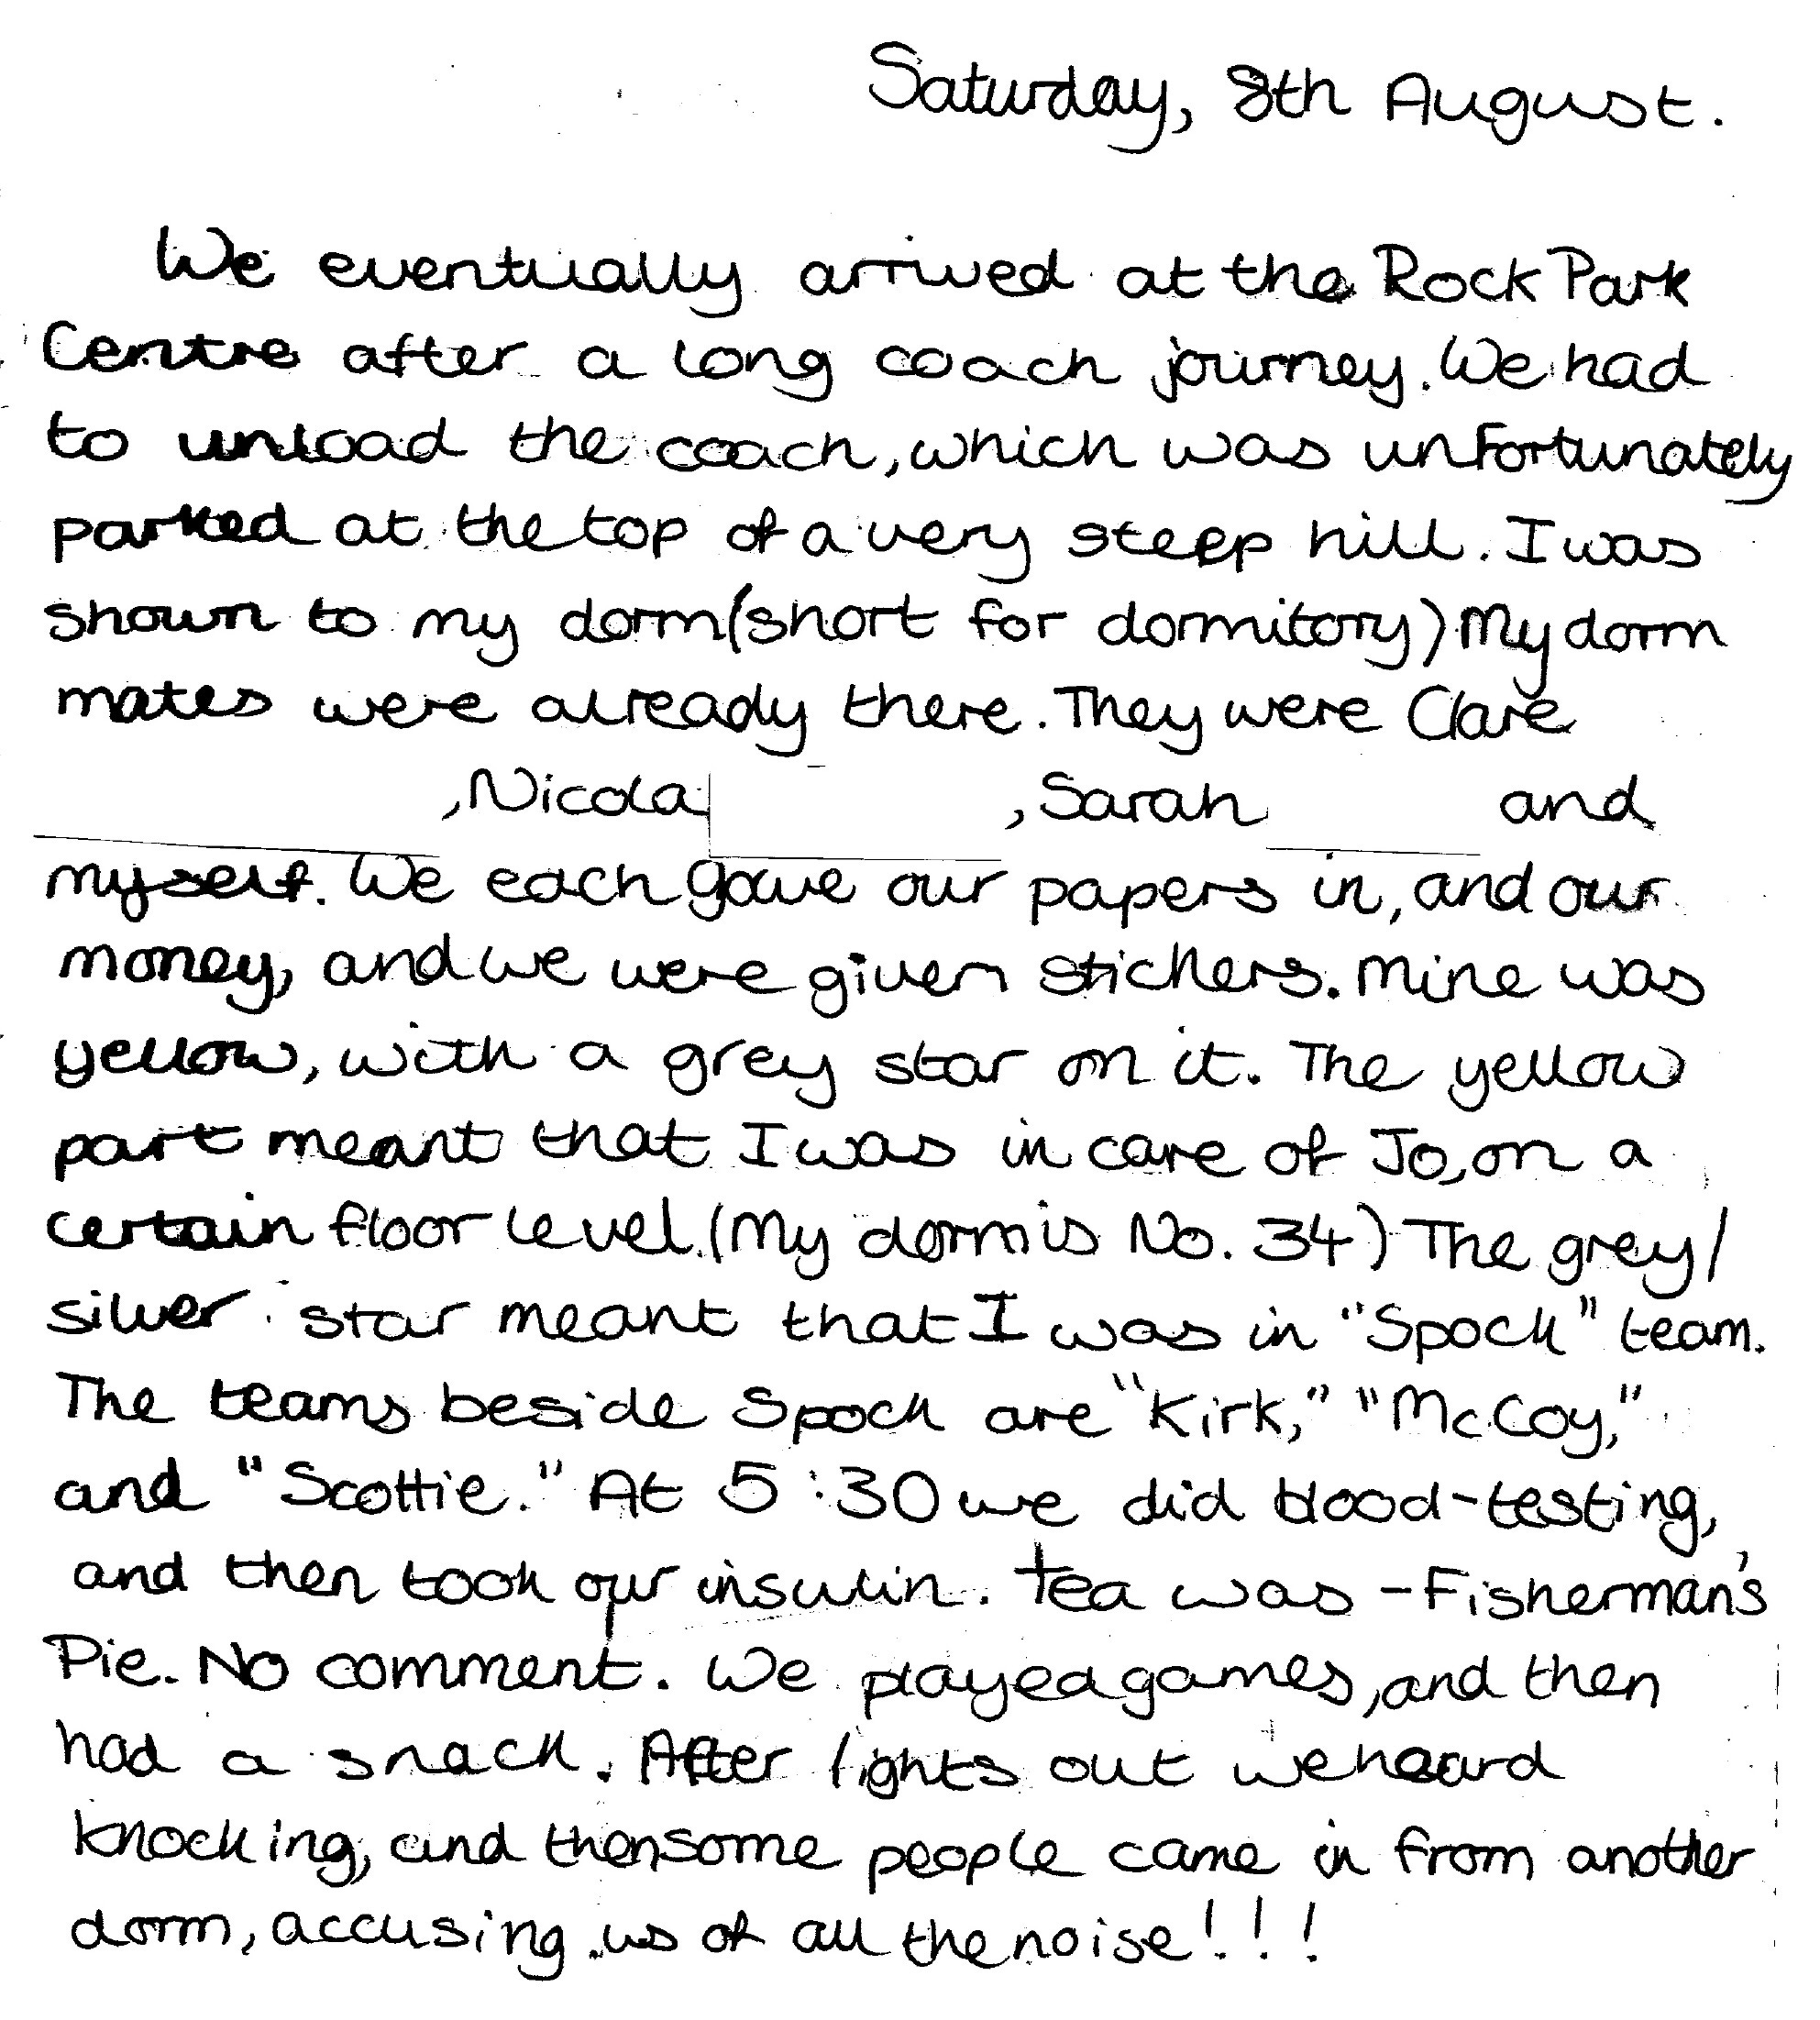 Saturday, 8th August.
We eventually arrived at the Rock Park
Centre after a long coach journey. We had
to unload the coach, which was unfortunately
parked at the top of a very steep hill. I was
shown to my dorm (short for dormitory) My dorm
mates were already there. They were Clare
, Nicola , Sarah and
myself. We each gave our papers in, and our
money, and we were given stickers. Mine was
yellow, with a grey star on it. The yellow
part meant that I was in care of Jo, on a
certain floor level. (My dorm is No. 34) The grey/
silver star meant that I was in "Spock" team.
The teams beside Spock are "Kirk," "McCoy,"
and "Scottie." At 5:30 we did blood-testing,
and then took our insulin. Tea was - Fisherman's
Pie. No comment. We played games, and then
had a snack. After lights out we heard
knocking, and then some people came in from another
dorm, accusing us of all the noise!!!